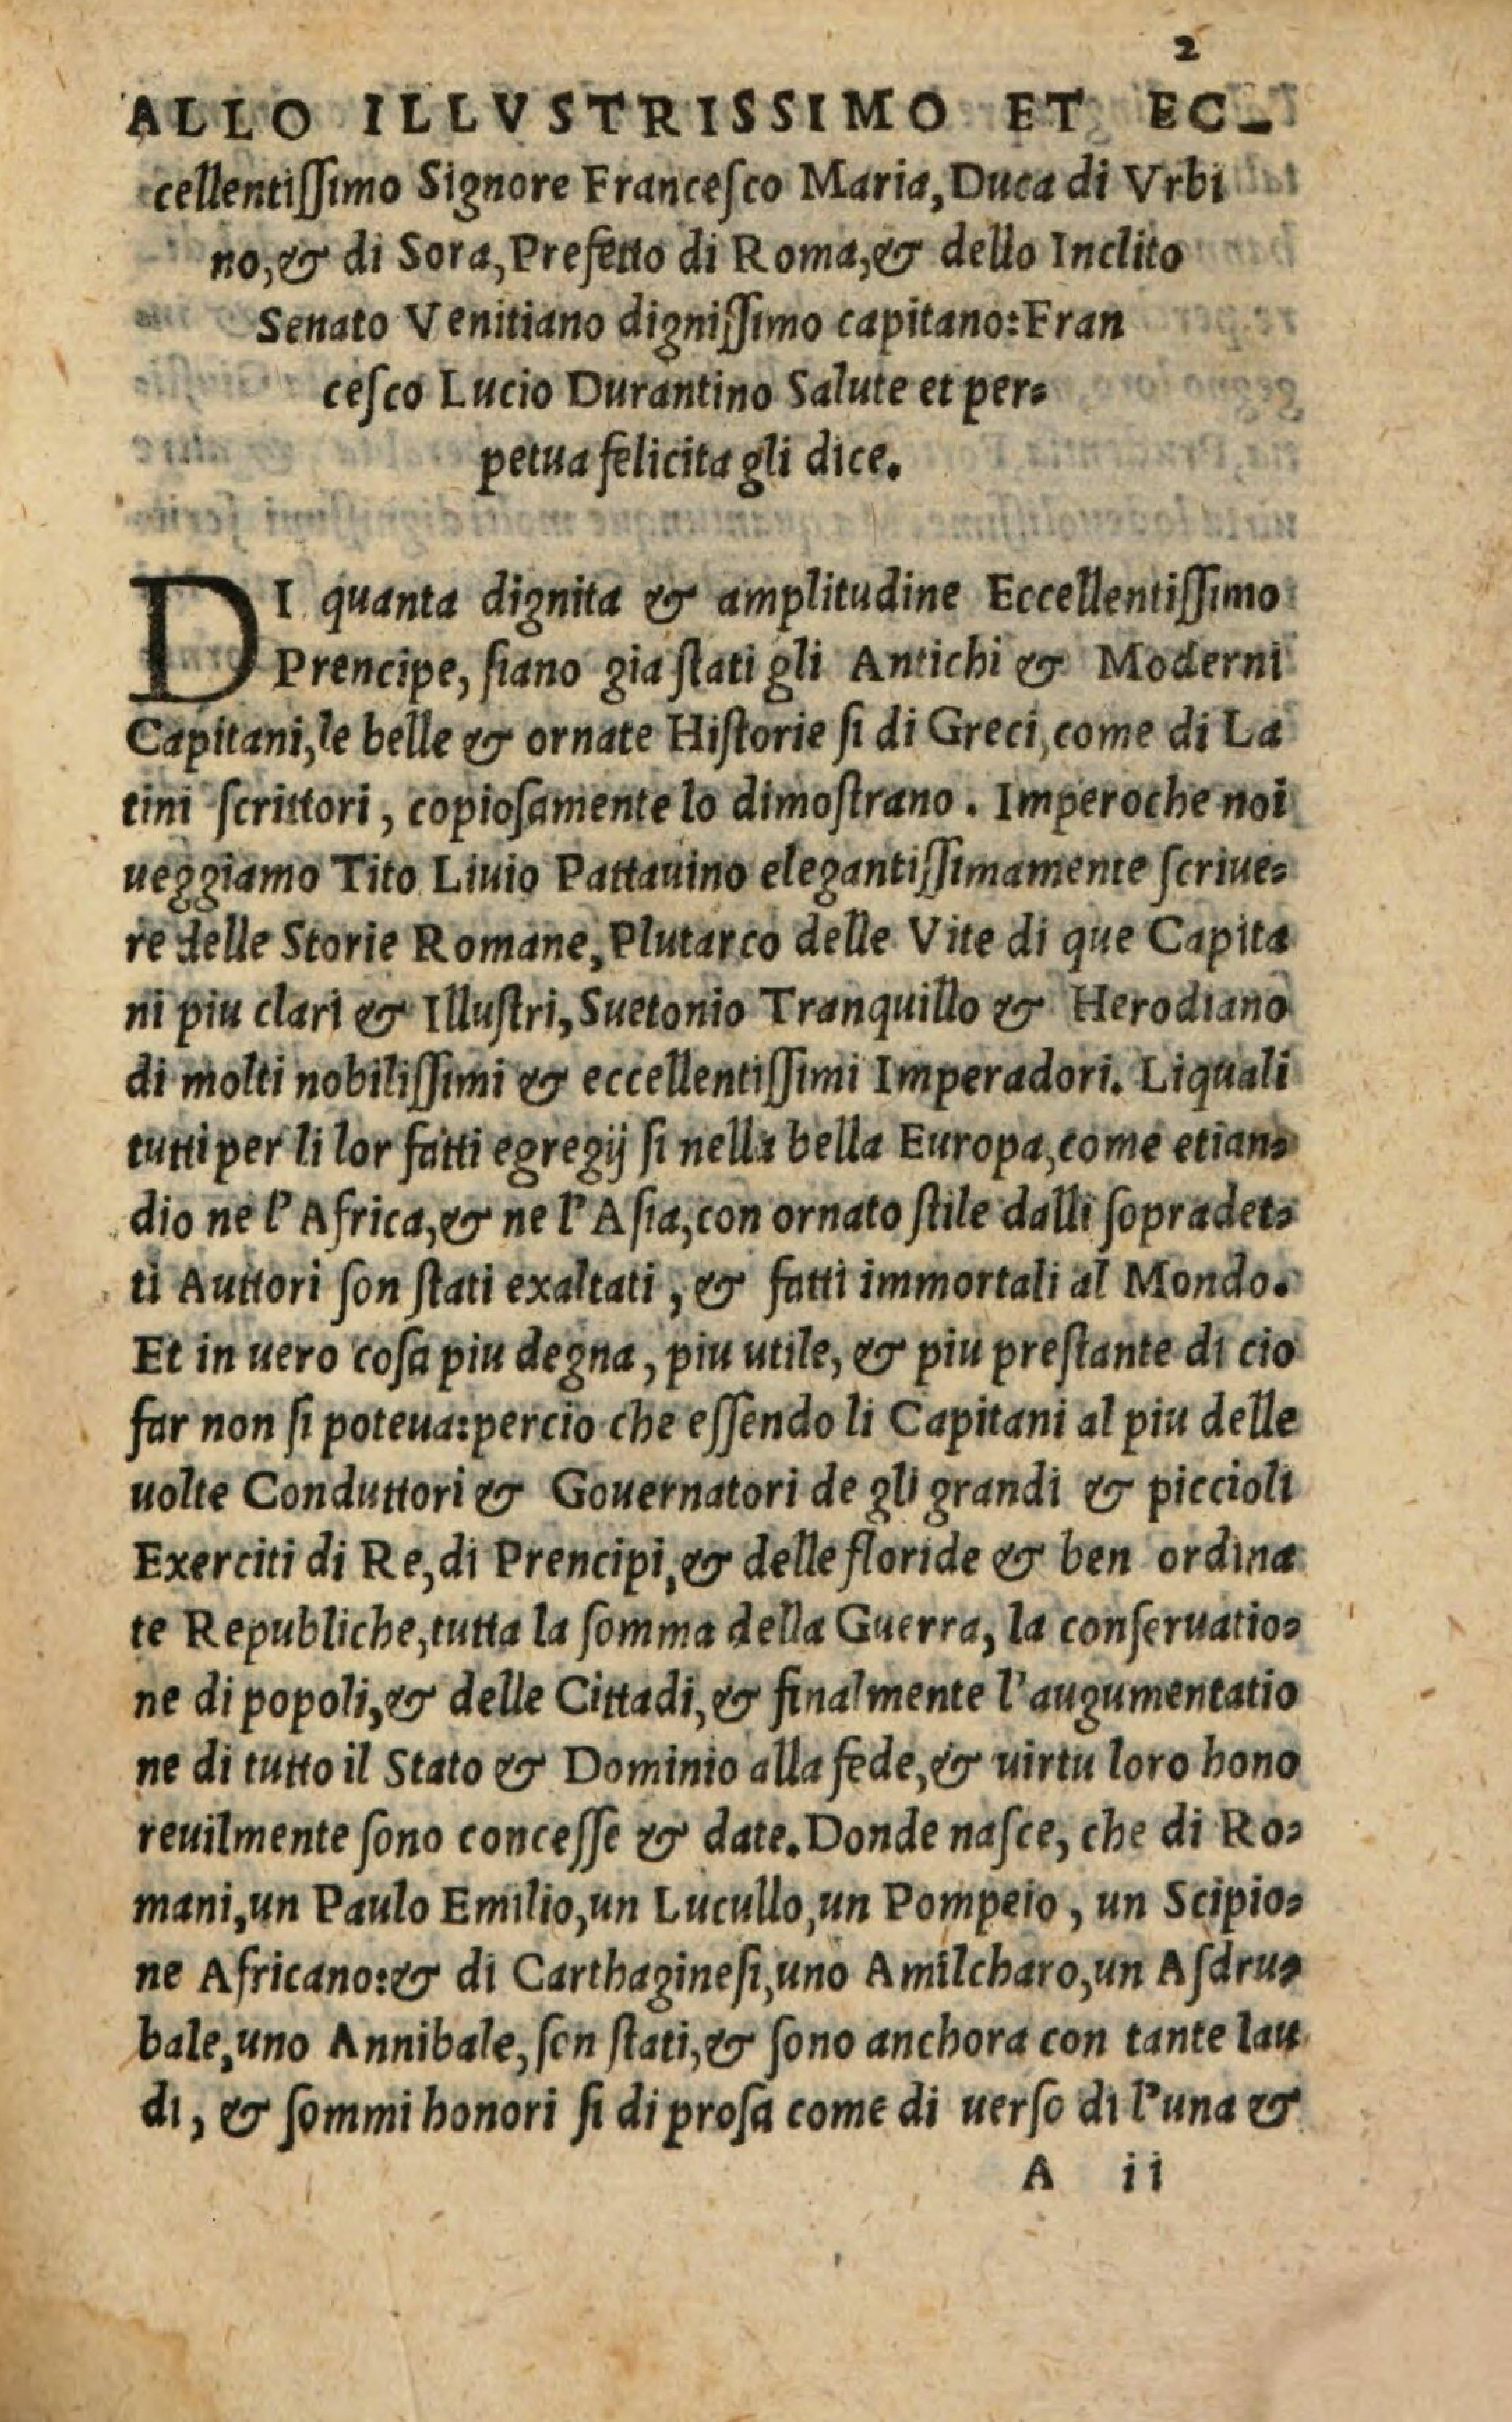 2
ALLO ILLVSTRISSIMO ET EC-
cellentiſſimo Signore Franceſco Maria, Duca di Vrbi
no, & di Sora, Prefetto di Roma, & dello Inclito
Senato Venitiano digniſſimo capitano: Fran
ceſco Lucio Durantino Salute et per=
petua felicita gli dice.
DI quanta dignita & amplitudine Eccellentiſſimo
Prencipe, ſiano gia ſtati gli Antichi & Moderni
Capitani, le belle & ornate Hiſtorie ſi di Greci, come di La
tini ſcrittori, copioſamente lo dimoſtrano. Imperoche noi
ueggiamo Tito Liuio Pattauino elegantiſſimamente ſcriue=
re delle Storie Romane, Plutarco delle Vite di que Capita
ni piu clari & Illuſtri, Suetonio Tranquillo & Herodiano
di molti nobiliſſimi & eccellentiſſimi Imperadori. Liquali
tutti per li lor fatti egregij ſi nella bella Europa, come etian=
dio ne l'Africa, & ne l'Aſia, con ornato ſtile dalli ſopradet=
ti Auttori ſon ſtati exaltati, & fatti immortali al Mondo.
Et in uero coſa piu degna, piu utile, & piu preſtante di cio
far non ſi poteua: percio che eſſendo li Capitani al piu delle
uolte Conduttori & Gouernatori de gli grandi & piccioli
Exerciti di Re, di Prencipi, & delle floride & ben ordina
te Republiche, tutta la ſomma della Guerra, la conſeruatio=
ne di popoli, & delle Cittadi, & finalmente l'augumentatio
ne di tutto il Stato & Dominio alla fede, & uirtu loro hono
reuilmente ſono conceſſe & date. Donde naſce, che di Ro=
mani, un Paulo Emilio, un Lucullo, un Pompeio, un Scipio=
ne Africano: & di Carthagineſi, uno Amilcharo, un Aſdru=
bale, uno Annibale, ſon ſtati, & ſono anchora con tante lau
di, & ſommi honori ſi di proſa come di uerſo di l'una &
A ii